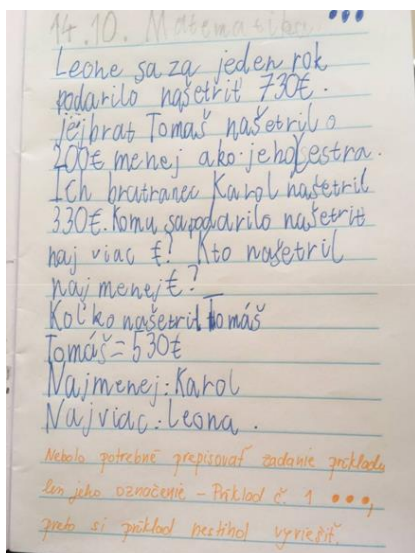 14.10. Matematika
Leone sa za jeden rok
podarilo našetriť 730€.
jej brat Tomáš našetril o
200€ menej ako jeho sestra.
Ich bratranec Karol našetril
330€. Komu sa podarilo našetriť
naj viac €? Kto našetril
naj menej €?
Koľko našetril Tomáš
Tomáš = 530€
Najmenej: Karol
Najviac: Leona.
Nebolo potrebné prepisovať zadanie príkladu
len jeho označenie - Príklad č. 1 ...,
preto si príklad nestihol vyriešiť.